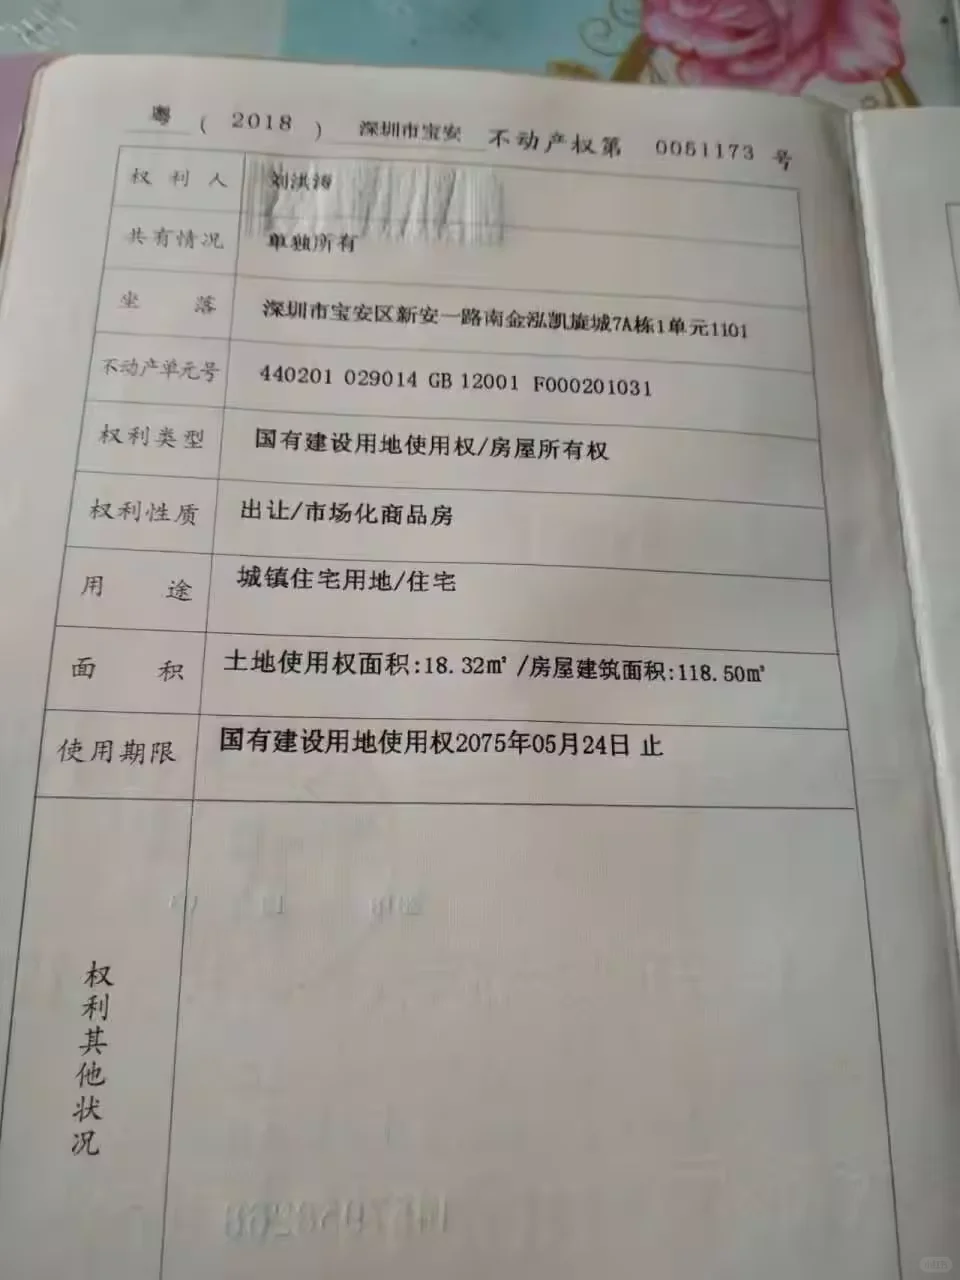 粤 ( 2018 ) 深圳市宝安 不动产权第 0051173 号
权利人 刘洪涛
共有情况 单独所有
坐落 深圳市宝安区新安一路南金泓凯旋城7A栋1单元1101
不动产单元号 440201 029014 GB 12001 F000201031
权利类型 国有建设用地使用权/房屋所有权
权利性质 出让/市场化商品房
用途 城镇住宅用地/住宅
面积 土地使用权面积:18.32㎡/房屋建筑面积:118.50㎡
使用期限 国有建设用地使用权2075年05月24日 止
权利其他状况